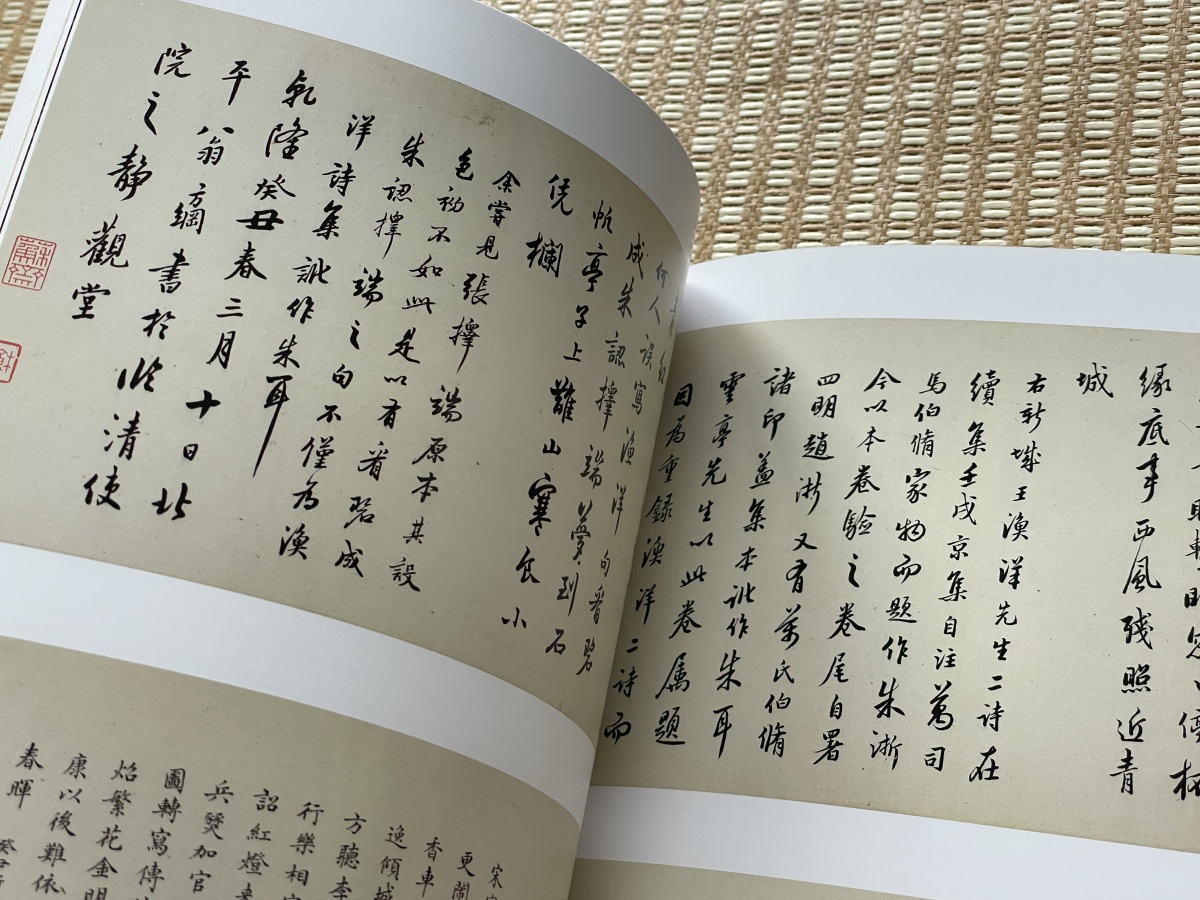 緣底事西風殘照近青
城
右新城王漁洋先生二詩在
續集壬戌京集自注萬司
馬伯脩家物而題作朱浙
今以本卷驗之卷尾自署
四明趙浙又有萬氏伯脩
諸印蓋集本訛作朱耳
雲亭先生以此卷属題
因為重錄漁洋二詩而
何人誤寫漁洋句看碧
成朱認擇端夢到石
帆亭子上山寒食小
凭欄
余嘗見張擇端原本其設
色初不如此是以有看碧成
朱認擇端之句不僅為漁
洋詩集訛作朱耳
乾隆癸丑春三月十日北
平翁方綱書於臨清使
院之靜觀堂
宋
更闌
香車
逸傾城
方聽李
行樂相
詔紅燈
兵燹加官
圖轉寫傳
焰繁花金明
康以後難依
春暉